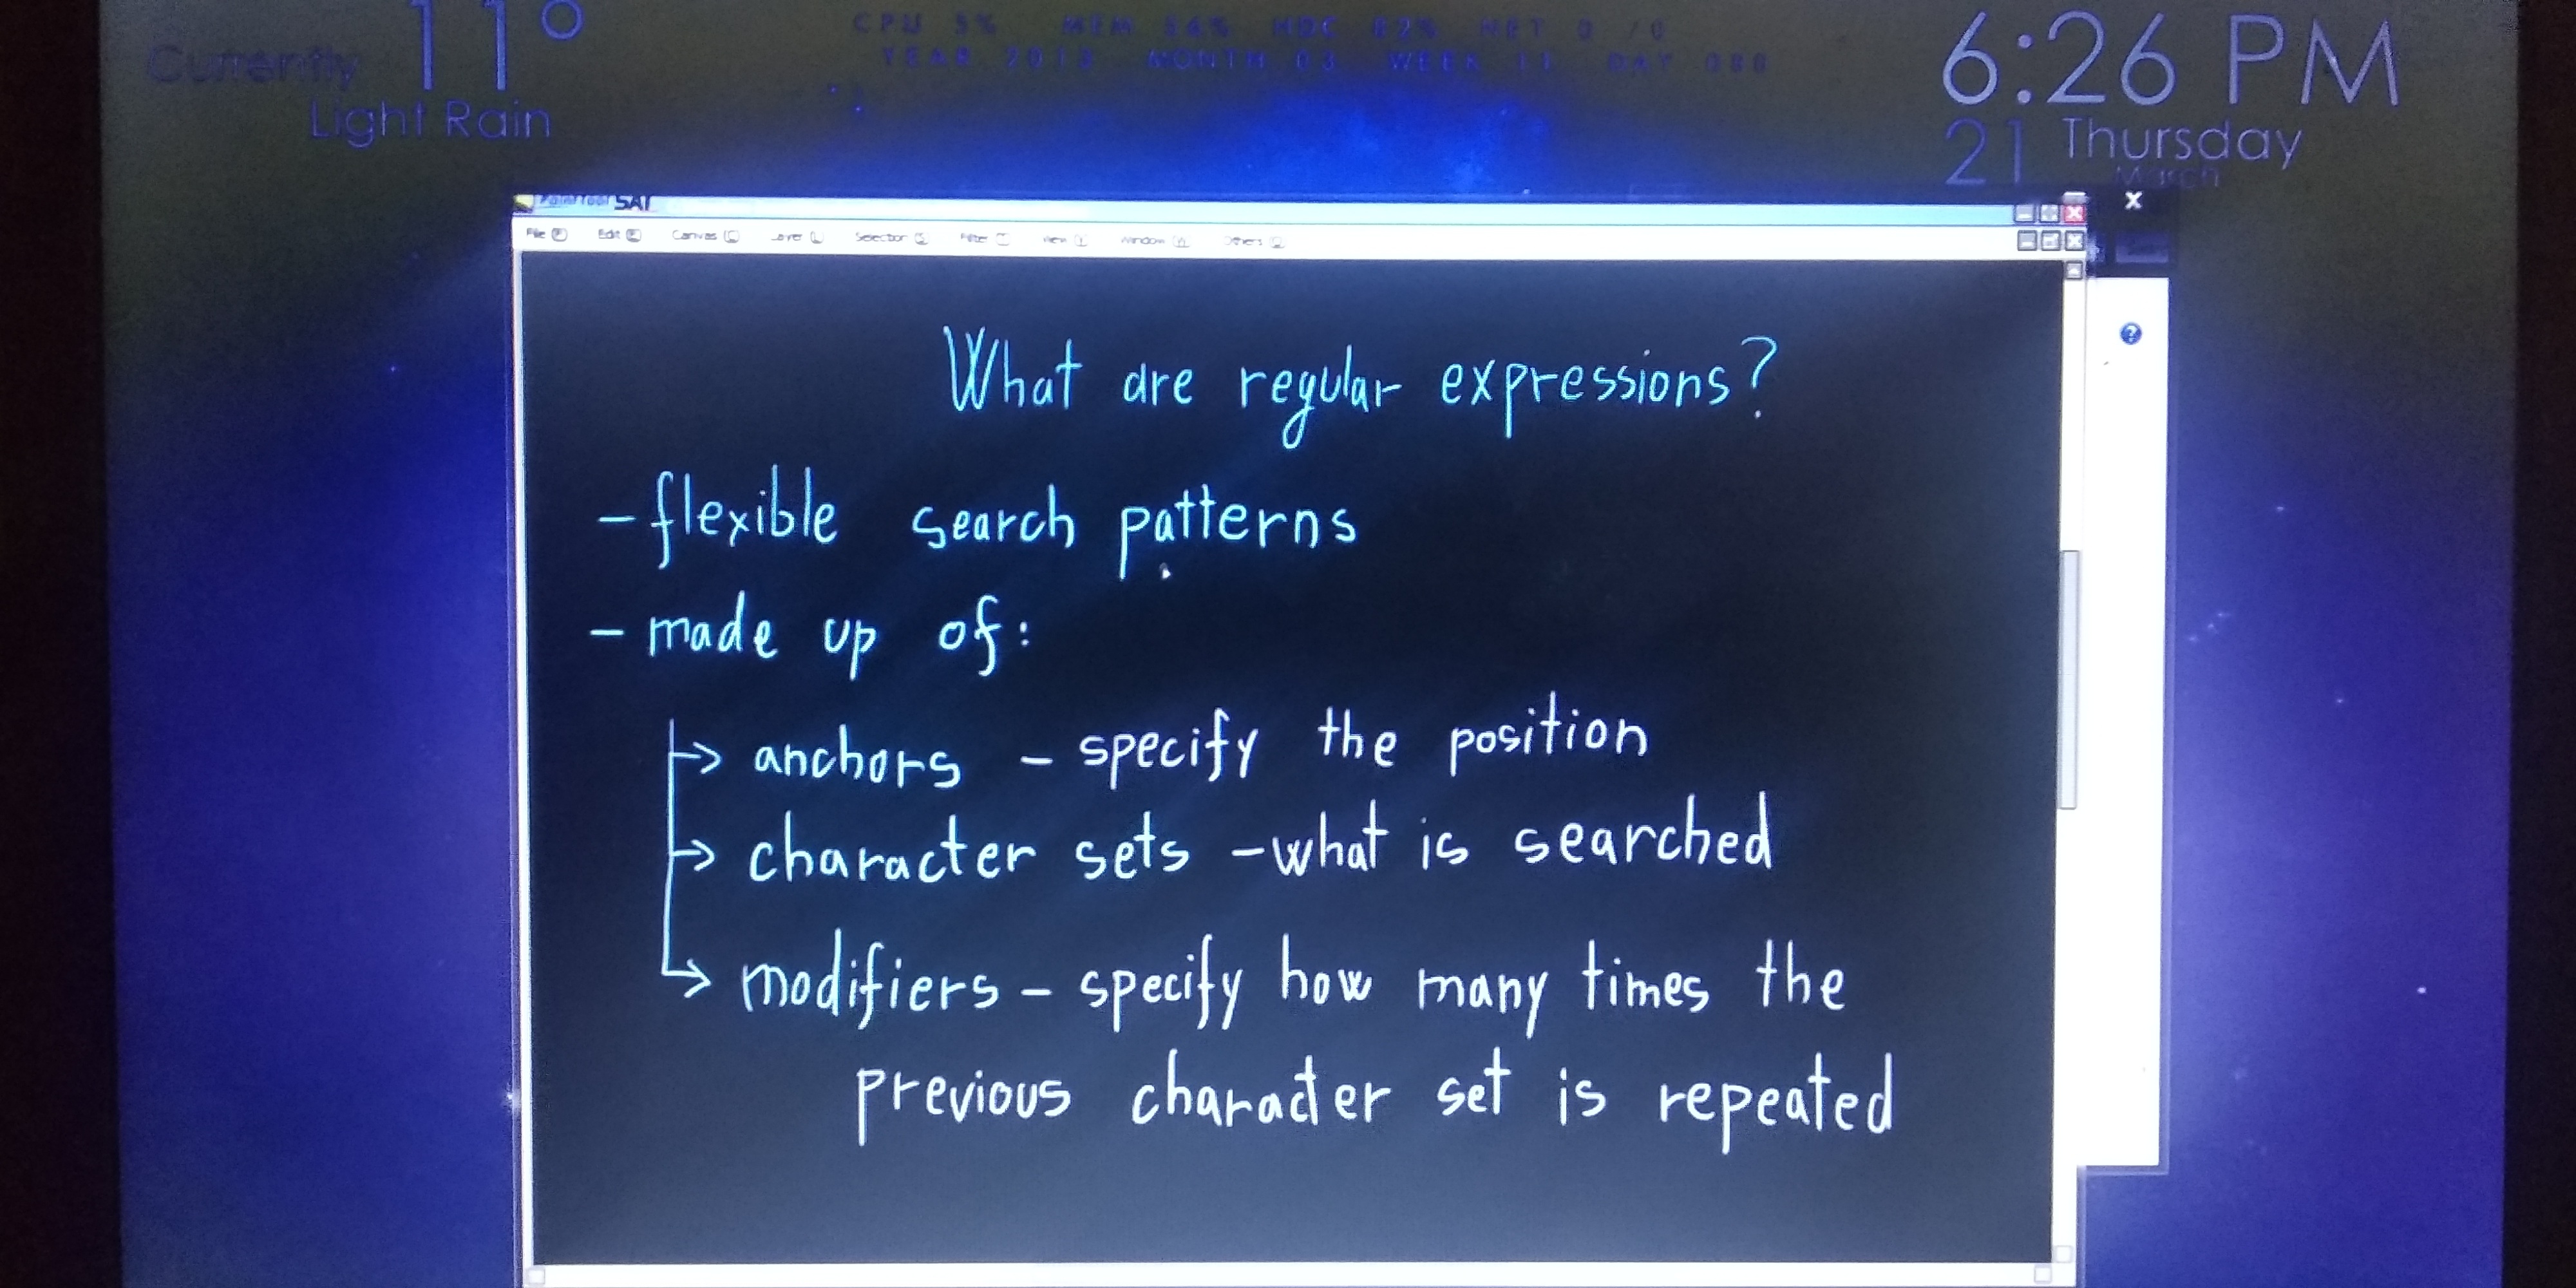 Currently 11°
Light Rain
CPU 5% MEM 56% HDC 82% NET 0 / 0
YEAR 2013 MONTH 03 WEEK 11
6:26 PM
21 Thursday
March
PaintTool SAI
File Edit Canvas Layer Selection Filter View Window Others
What are regular expressions?
- flexible search patterns
- made up of:
anchors - specify the position
character sets - what is searched
modifiers - specify how many times the
previous character set is repeated